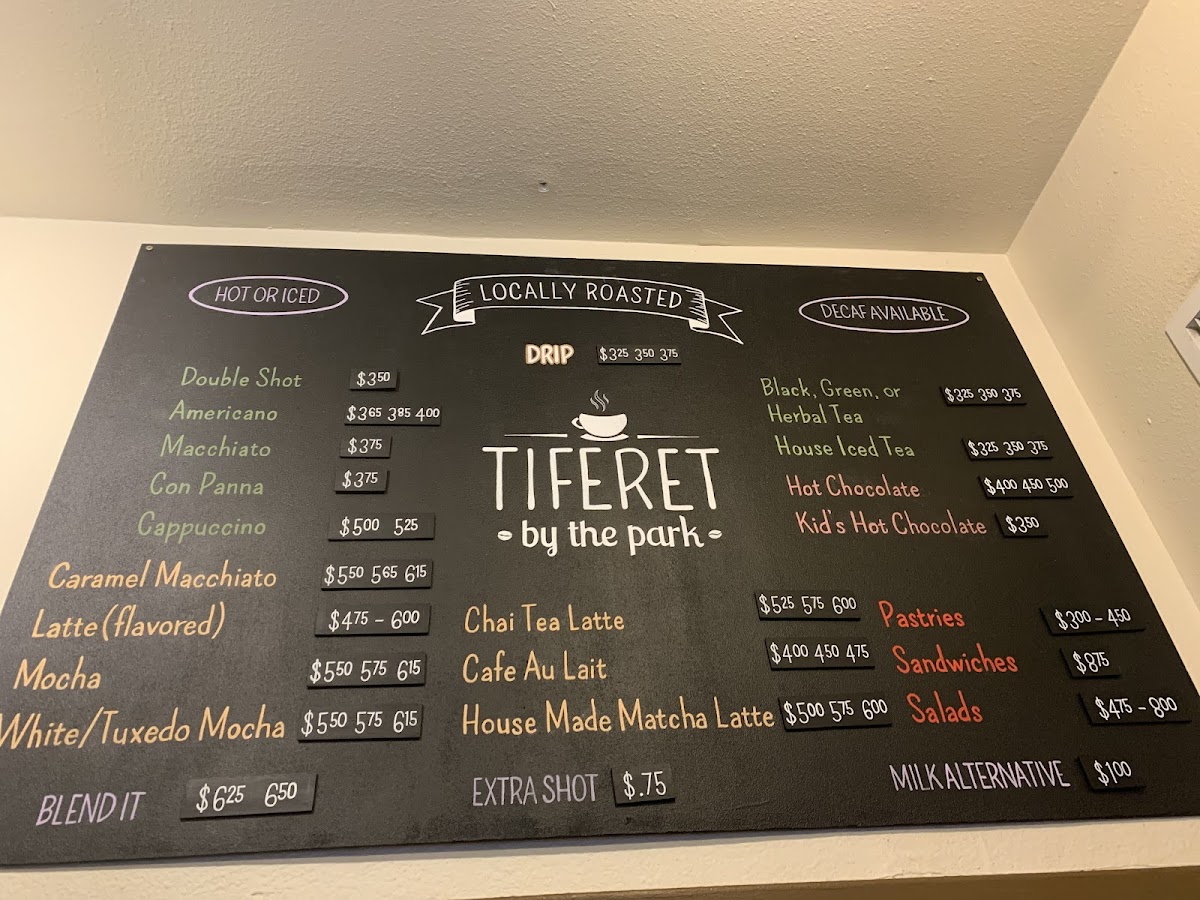 HOT OR ICED
LOCALLY ROASTED
DECAF AVAILABLE
DRIP $3.25 3.50 3.75
Double Shot $3.50
Americano $3.65 3.85 4.00
Macchiato $3.75
Con Panna $3.75
Cappuccino $5.00 5.25
Caramel Macchiato $5.50 5.65 6.15
Latte (flavored) $4.75 - 6.00
Mocha $5.50 5.75 6.15
White/Tuxedo Mocha $5.50 5.75 6.15
BLEND IT $6.25 6.50
TIFERET
by the park
Chai Tea Latte $5.25 5.75 6.00
Cafe Au Lait $4.00 4.50 4.75
House Made Matcha Latte $5.00 5.75 6.00
EXTRA SHOT $.75
Black, Green, or
Herbal Tea $3.25 3.50 3.75
House Iced Tea $3.25 3.50 3.75
Hot Chocolate $4.00 4.50 5.00
Kid's Hot Chocolate $3.50
Pastries $3.00 - 4.50
Sandwiches $8.75
Salads $4.75 - 8.00
MILK ALTERNATIVE $1.00